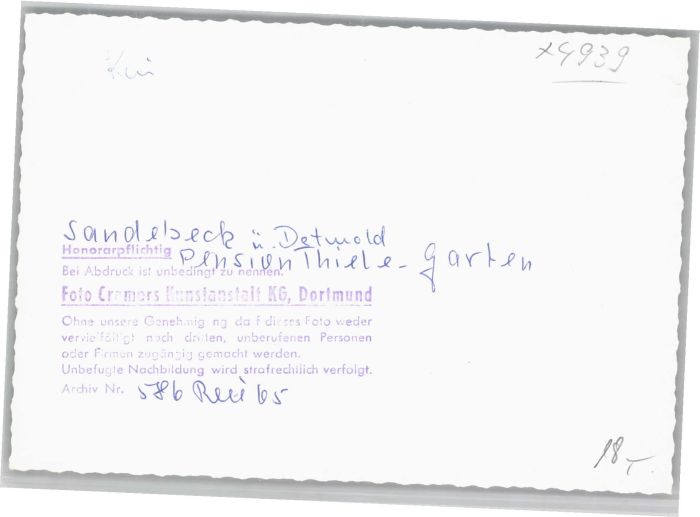 x4939
Sandebeck ü. Detmold
Honorarpflichtig
Pension Thiele - Garten
Bei Abdruck ist unbedingt zu nennen:
Foto Cramers Kunstanstalt KG, Dortmund
Ohne unsere Genehmigung darf dieses Foto weder
vervielfältigt noch dritten, unberufenen Personen
oder Firmen zugängig gemacht werden.
Unbefugte Nachbildung wird strafrechtlich verfolgt.
Archiv Nr. 586 65
18,-